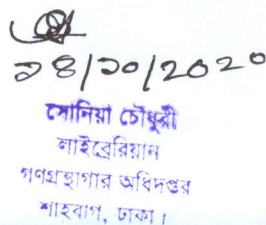 ১৪/১০/২০২০
সোনিয়া চৌধুরী
লাইব্রেরিয়ান
গণগ্রন্থাগার অধিদপ্তর
শাহবাগ, ঢাকা।